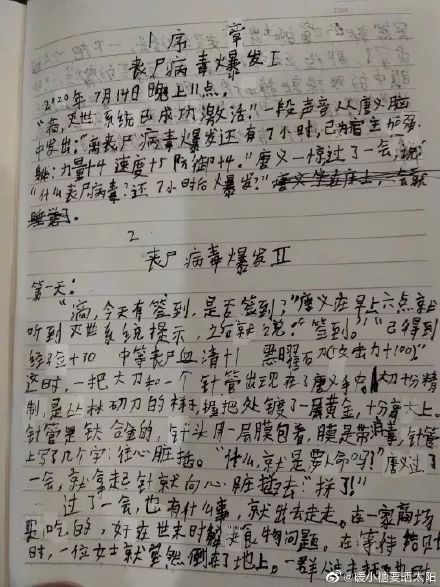 1 序章
丧尸病毒爆发I
2020年7月14日晚上11点,
“滴,灭世系统已成功激活。”一段声音从唐义脑
中发出:“离丧尸病毒爆发还有7小时,已为宿主加强
躯:力量+4 速度+5 防御+4。”唐义一惊过了一会,说:
“什么丧尸病毒?还7小时后爆发?”
睡着。
2
丧尸病毒爆发II
第一天:
“滴,今天有签到,是否签到?”唐义在早上六点就
听到灭世系统提示,立马就说:“签到。”“已得到
经验+30 中等丧尸血清+1 恶曜石刀(攻击力+100)”
这时,一把大刀和一个针管出现在了唐义手中。大刀十分精
制,是丛林切刀的样子,握把处镀了一层黄金,十分高大上。
针管是钛合金的,针头用一层膜包着,膜是带消毒,针管
上写了几个字:往心脏插。“什么,就是要人命吗?”唐义过了
一会,就拿起针就向心脏插去“拼了!”
过了一会,也有什么事,就出去走走。在一家商场
买吃的,好在世末时解决食物问题。在等待结账
时,一位女士就突然倒在了地上。一群人
@缓小槌要晒太阳